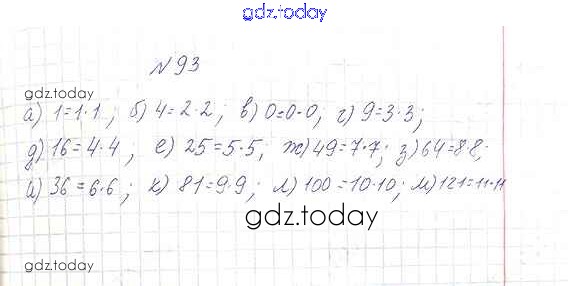 gdz.today
№ 93
gdz.today
а) 1=1·1; б) 4=2·2; в) 0=0·0; г) 9=3·3;
д) 16=4·4; е) 25=5·5; ж) 49=7·7; з) 64=8·8;
и) 36=6·6; к) 81=9·9; л) 100=10·10; м) 121=11·11
gdz.today
gdz.today